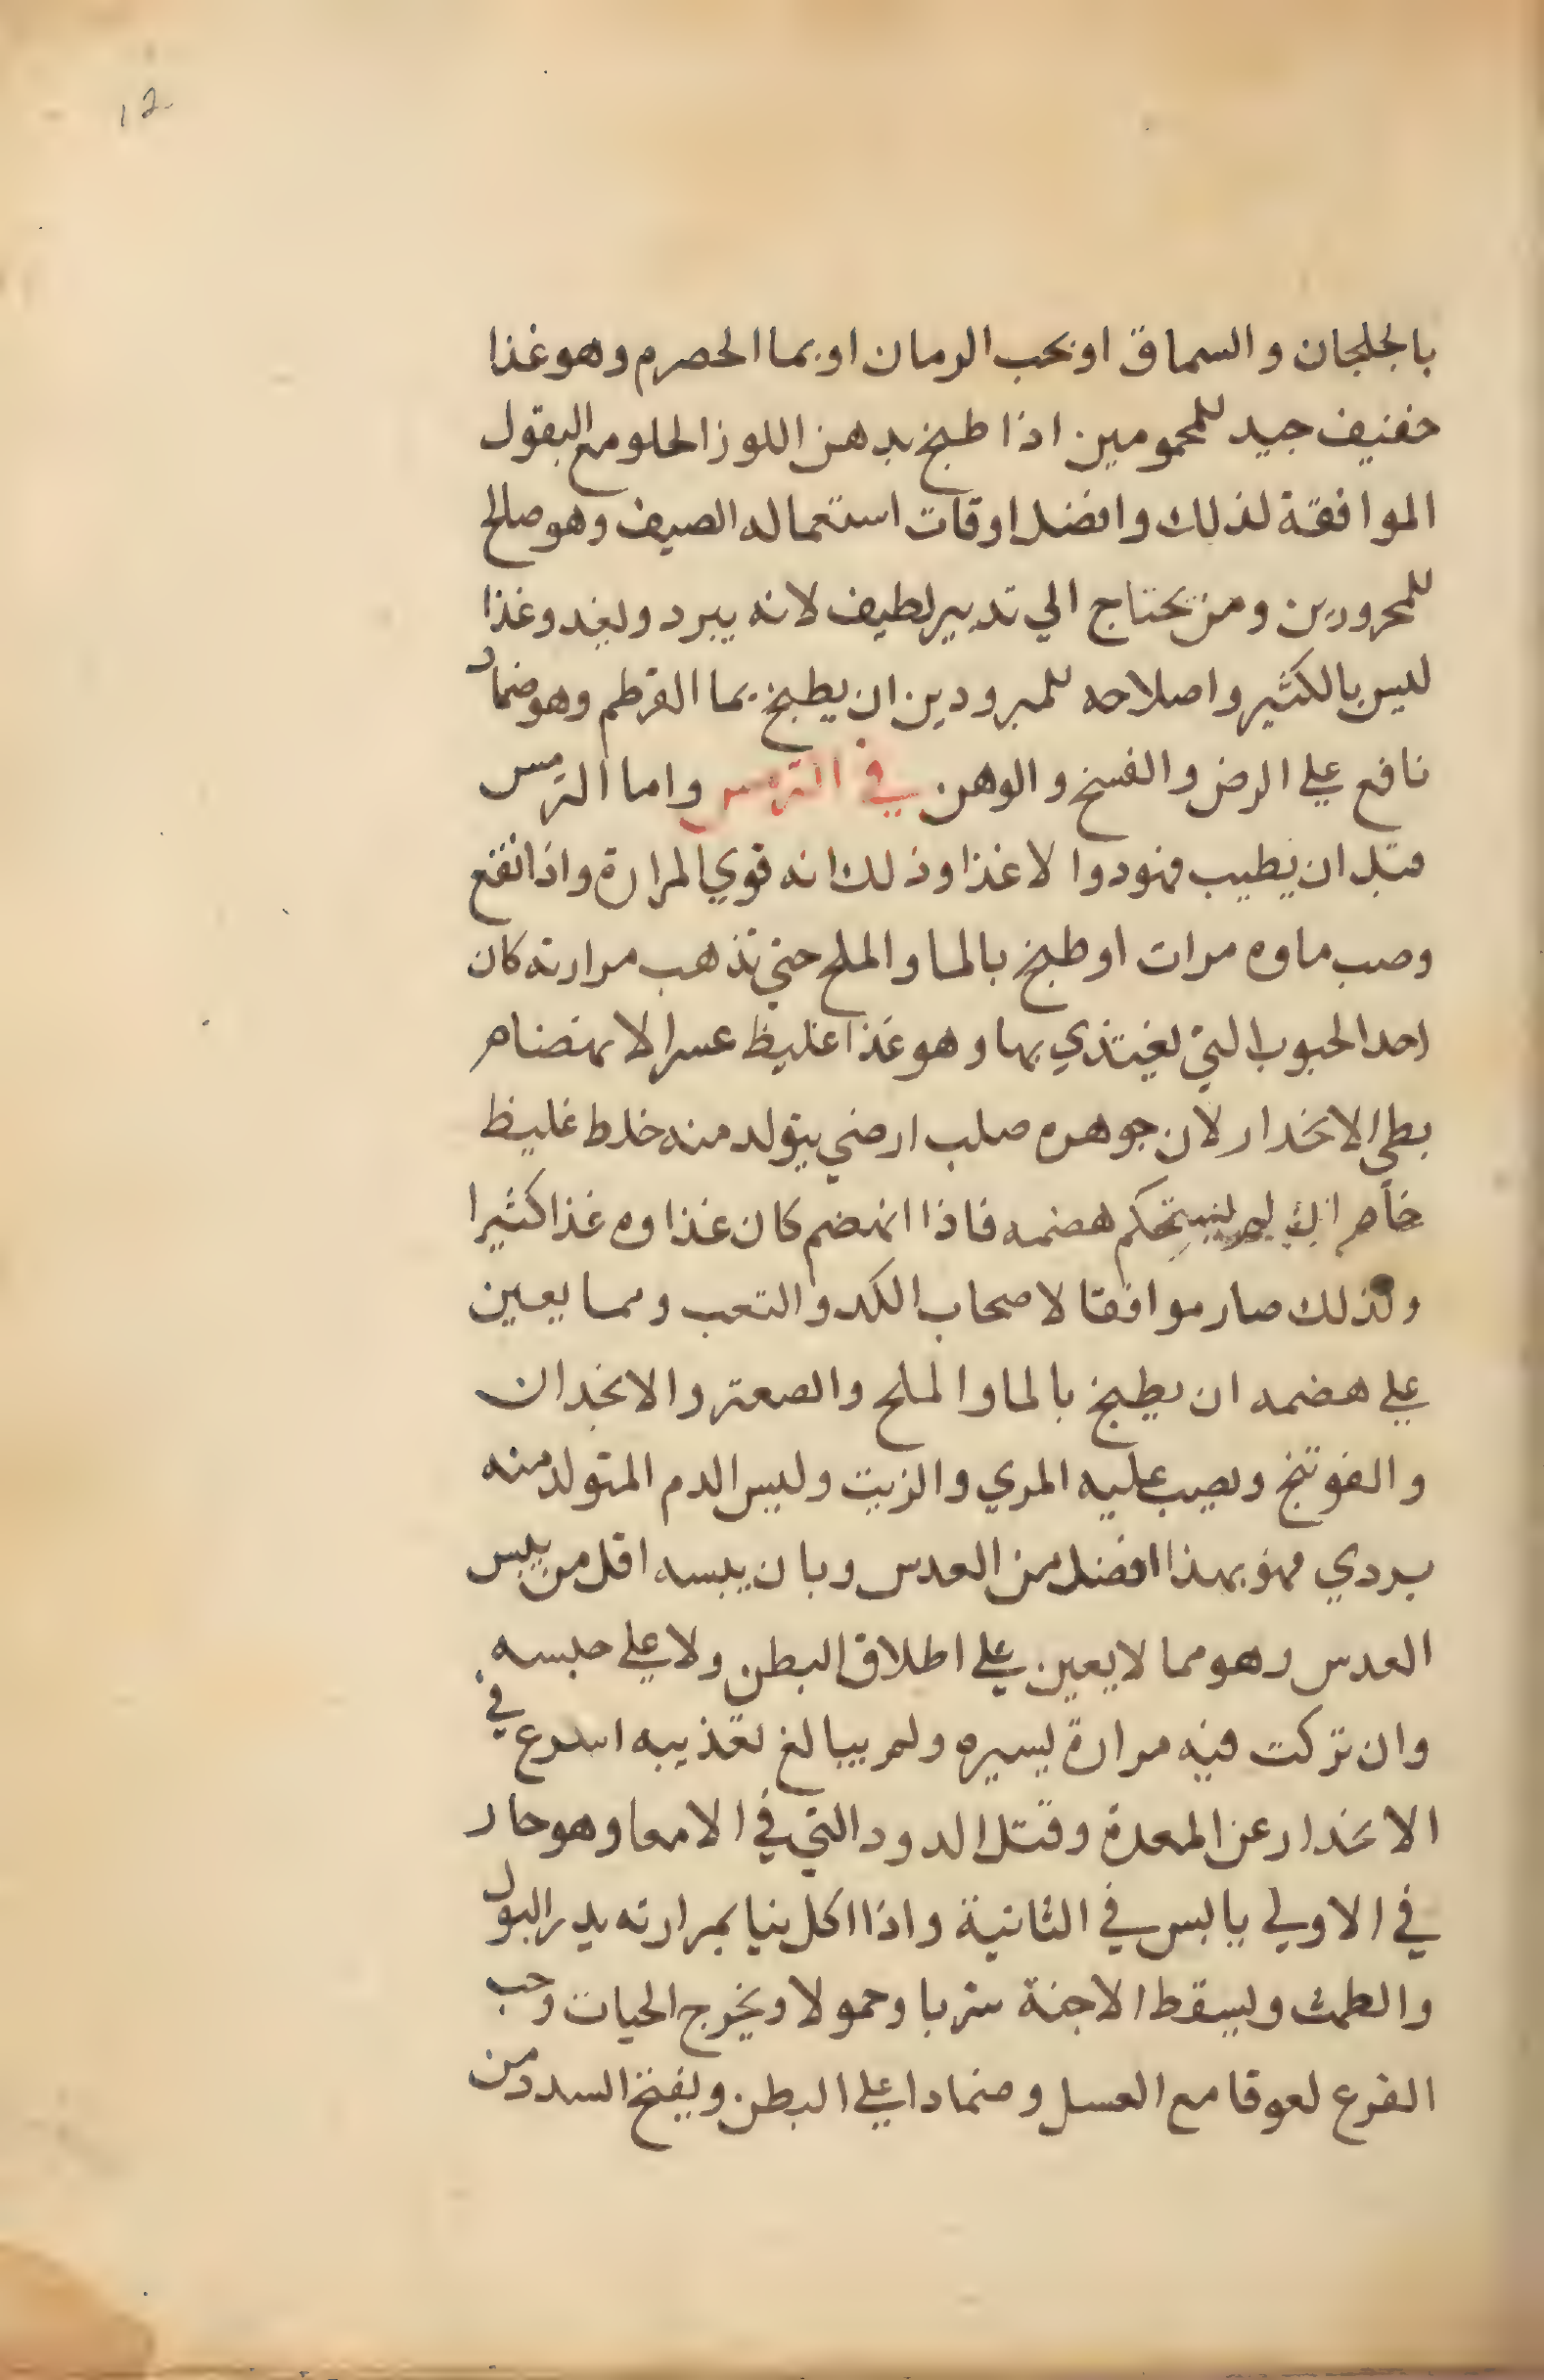 12
بالجلجان والسماق اوبحب الرمان اوبما الحصرم وهو غذا
خفيف جيد للمحمومين اذا طبخ بدهن اللوز الحلو مع البقول
الموافقة لذلك وافضل اوقات استعماله الصيف وهو صالح
للمحرورين ومن يحتاج الي تدبير لطيف لانه يبرد ويغدو غذا
ليس بالكثير واصلاحه للمبرودين ان يطبخ بما القرطم وهو ضماد
نافع علي الرض والفسخ والوهن في الترمس واما الترمس
قبل ان يطيب فهو دوا لا غذا وذلك انه قوي المرارة واذا نقع
وصب ماوه مرات اوطبخ بالما والملح حتي تذهب مرارته كان
احد الحبوب التي يغتذي بها وهو غذا غليظ عسر الانهضام
بطي الانحدار لان جوهره صلب ارضي يتولد منه خلط غليظ
خام ان لم يستحكم هضمه فاذا انهضم كان غذاوه غذا كثيرا
ولذلك صار موافقا لاصحاب الكد والتعب ومما يعين
علي هضمه ان يطبخ بالما والملح والصعتر والانجدان
والفوتنج ويصب عليه المري والزيت وليس الدم المتولد منه
بردي فهو بهذا افضل من العدس وبان يبسه اقل من يبس
العدس وهو مما لا يعين علي اطلاق البطن ولا علي حبسه
وان تركت فيه مرارة يسيره ولم يبالغ تعذيبه اسرع في
الانحدار عن المعدة وقتل الدود التي في الامعا وهو حار
في الاولي يابس في الثانية واذا اكل نيا بمرارته يدر البول
والطمث ويسقط الاجنة شربا وحمولا ويخرج الحيات وحب
القرع لعوقا مع العسل وضمادا علي البطن ويفتح السدد من